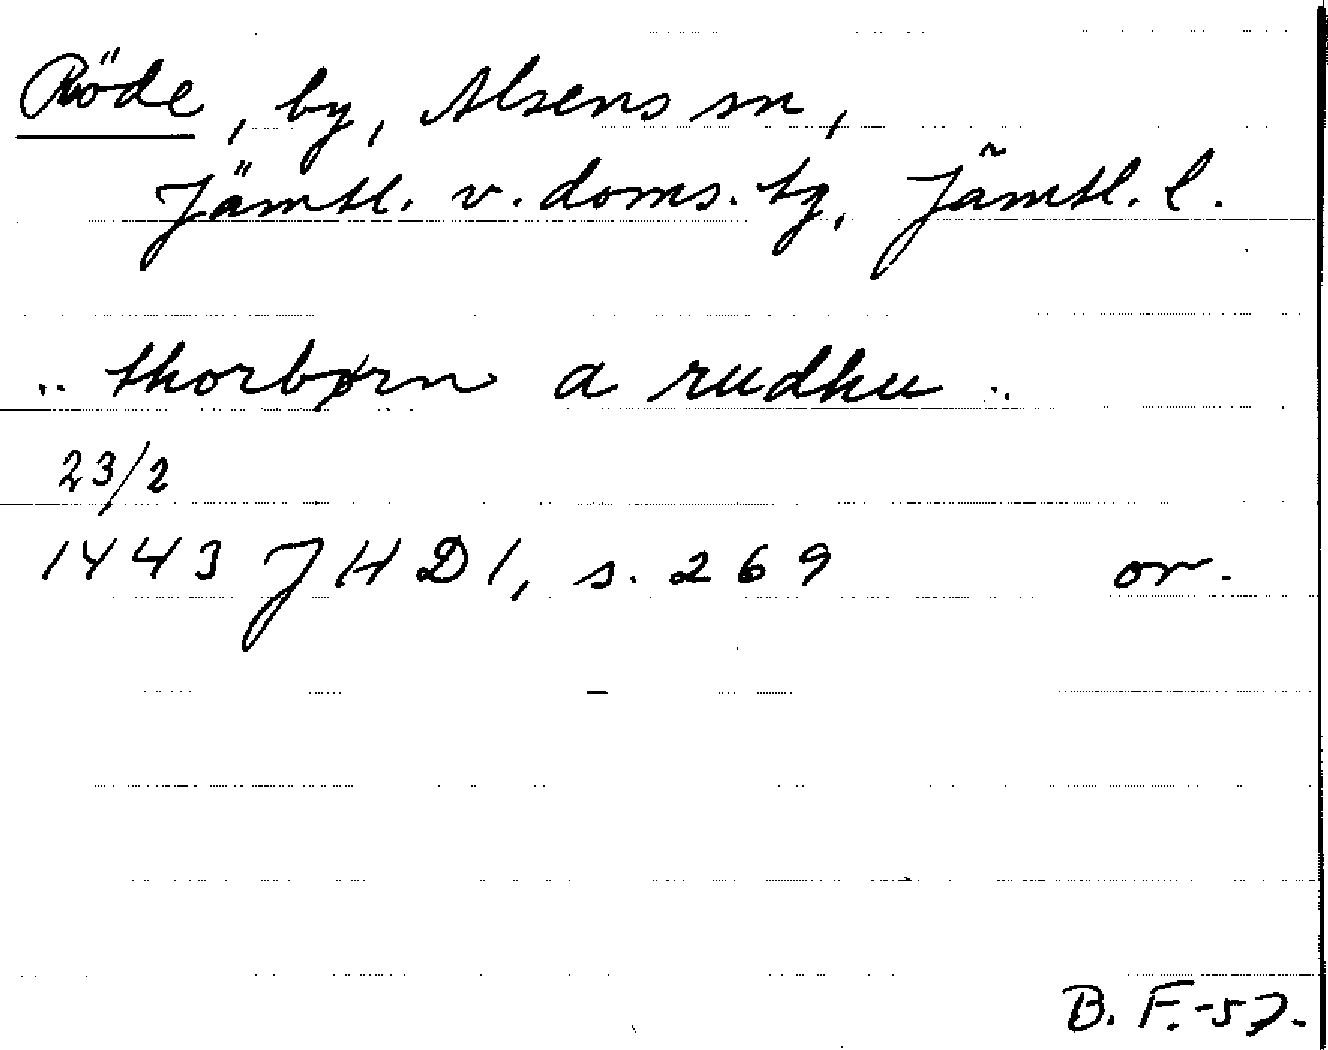 Röde, by, Alsens sn,
Jämtl. v. doms. tg, Jämtl. l.
.. thorbørn a rudhu ..
23/2
1443 JHD 1, s. 269 or.
B. F. -57.